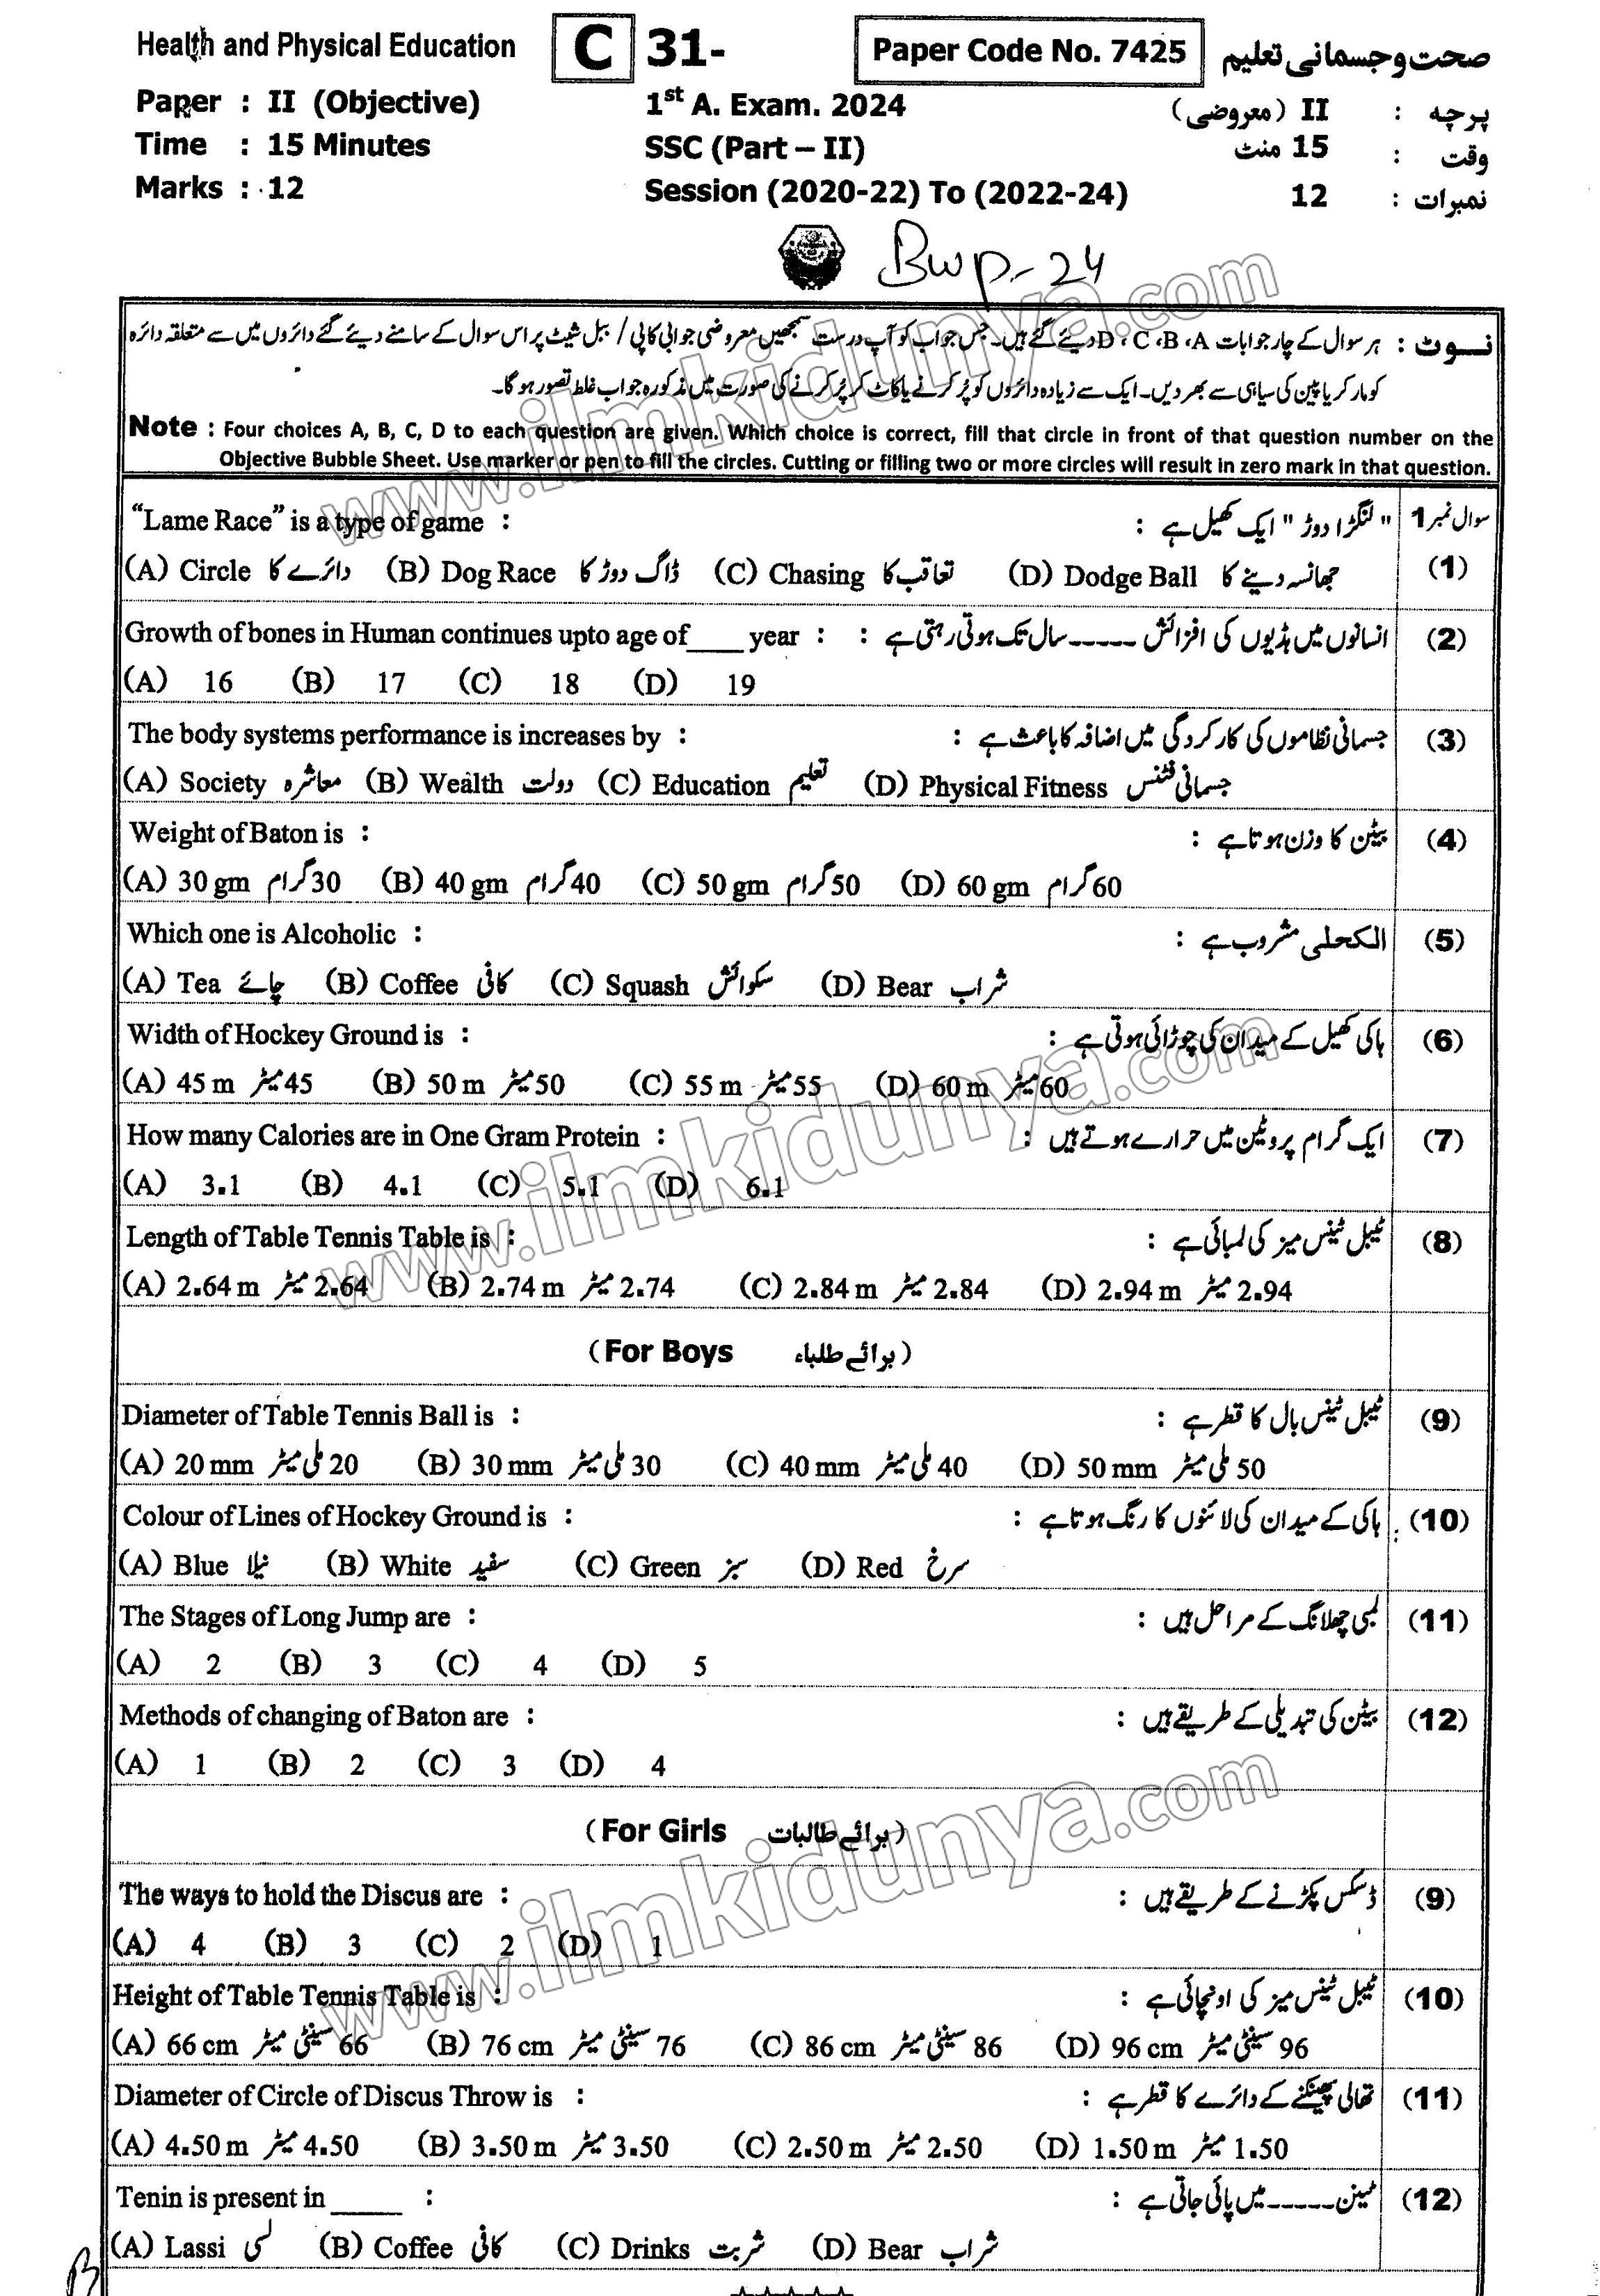 Health and Physical Education C 31- Paper Code No. 7425 صحت و جسمانی تعلیم
Paper : II (Objective) 1st A. Exam. 2024 پرچہ : II (معروضی)
Time : 15 Minutes SSC (Part – II) وقت : 15 منٹ
Marks : 12 Session (2020-22) To (2022-24) نمبرات : 12
Bwp-24
نوٹ : ہر سوال کے چار جوابات D، C، B، A دیئے گئے ہیں۔ جس جواب کو آپ درست سمجھیں معروضی جوابی کاپی / ببل شیٹ پر اس سوال کے سامنے دیئے گئے دائروں میں سے متعلقہ دائرہ
کو مارکر یا پین کی سیاہی سے بھر دیں۔ ایک سے زیادہ دائروں کو پُر کرنے یا کاٹ کر پُر کرنے کی صورت میں مذکورہ جواب غلط تصور ہوگا۔
Note : Four choices A, B, C, D to each question are given. Which choice is correct, fill that circle in front of that question number on the
Objective Bubble Sheet. Use marker or pen to fill the circles. Cutting or filling two or more circles will result in zero mark in that question.
“Lame Race” is a type of game : "لنگڑا دوڑ" ایک کھیل ہے : سوال نمبر 1
(A) Circle دائرے کا (B) Dog Race ڈاگ دوڑ کا (C) Chasing تعاقب کا (D) Dodge Ball جھانسہ دینے کا (1)
Growth of bones in Human continues upto age of____ year : انسانوں میں ہڈیوں کی افزائش ----- سال تک ہوتی رہتی ہے : (2)
(A) 16 (B) 17 (C) 18 (D) 19
The body systems performance is increases by : جسمانی نظاموں کی کارکردگی میں اضافہ کا باعث ہے : (3)
(A) Society معاشرہ (B) Wealth دولت (C) Education تعلیم (D) Physical Fitness جسمانی فٹنس
Weight of Baton is : بیٹن کا وزن ہوتا ہے : (4)
(A) 30 gm 30گرام (B) 40 gm 40گرام (C) 50 gm 50گرام (D) 60 gm 60گرام
Which one is Alcoholic : الکحلی مشروب ہے : (5)
(A) Tea چائے (B) Coffee کافی (C) Squash سکوائش (D) Bear شراب
Width of Hockey Ground is : ہاکی کھیل کے میدان کی چوڑائی ہوتی ہے : (6)
(A) 45 m 45میٹر (B) 50 m 50میٹر (C) 55 m 55میٹر (D) 60 m 60میٹر
How many Calories are in One Gram Protein : ایک گرام پروٹین میں حرارے ہوتے ہیں : (7)
(A) 3.1 (B) 4.1 (C) 5.1 (D) 6.1
Length of Table Tennis Table is : ٹیبل ٹینس میز کی لمبائی ہے : (8)
(A) 2.64 m 2.64 میٹر (B) 2.74 m 2.74 میٹر (C) 2.84 m 2.84 میٹر (D) 2.94 m 2.94 میٹر
(For Boys برائے طلباء)
Diameter of Table Tennis Ball is : ٹیبل ٹینس بال کا قطر ہے : (9)
(A) 20 mm 20 ملی میٹر (B) 30 mm 30 ملی میٹر (C) 40 mm 40 ملی میٹر (D) 50 mm 50 ملی میٹر
Colour of Lines of Hockey Ground is : ہاکی کے میدان کی لائنوں کا رنگ ہوتا ہے : (10)
(A) Blue نیلا (B) White سفید (C) Green سبز (D) Red سرخ
The Stages of Long Jump are : لمبی چھلانگ کے مراحل ہیں : (11)
(A) 2 (B) 3 (C) 4 (D) 5
Methods of changing of Baton are : بیٹن کی تبدیلی کے طریقے ہیں : (12)
(A) 1 (B) 2 (C) 3 (D) 4
(For Girls برائے طالبات)
The ways to hold the Discus are : ڈسکس پکڑنے کے طریقے ہیں : (9)
(A) 4 (B) 3 (C) 2 (D) 1
Height of Table Tennis Table is : ٹیبل ٹینس میز کی اونچائی ہے : (10)
(A) 66 cm 66 سینٹی میٹر (B) 76 cm 76 سینٹی میٹر (C) 86 cm 86 سینٹی میٹر (D) 96 cm 96 سینٹی میٹر
Diameter of Circle of Discus Throw is : تھالی پھینکنے کے دائرے کا قطر ہے : (11)
(A) 4.50 m 4.50 میٹر (B) 3.50 m 3.50 میٹر (C) 2.50 m 2.50 میٹر (D) 1.50 m 1.50 میٹر
Tenin is present in _____ : ٹینن ----- میں پائی جاتی ہے : (12)
(A) Lassi لسی (B) Coffee کافی (C) Drinks شربت (D) Bear شراب
www.ilmkidunya.com
www.ilmkidunya.com
www.ilmkidunya.com